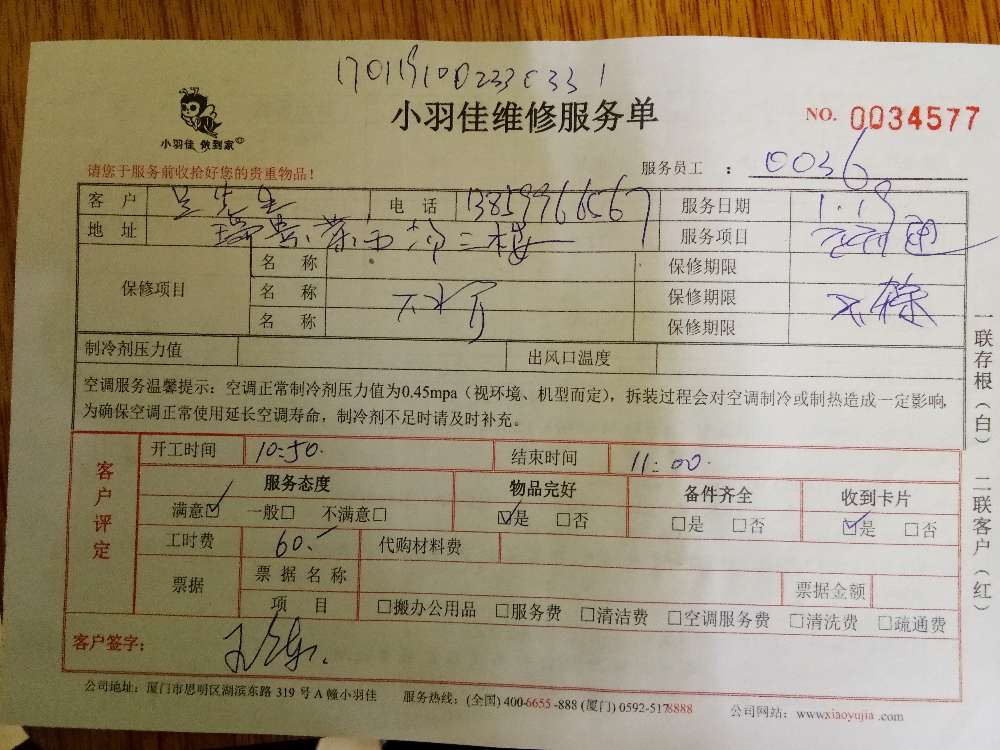 170119100233C331
小羽佳 做到家
小羽佳维修服务单
NO. 0034577
请您于服务前收拾好您的贵重物品！
服务员工 ： 0036
客 户 先生 电 话 13859966567 服务日期 1.19
地 址 三楼 服务项目
保修项目 名 称 保修期限
名 称 保修期限
名 称 保修期限
制冷剂压力值 出风口温度
空调服务温馨提示：空调正常制冷剂压力值为0.45mpa（视环境、机型而定），拆装过程会对空调制冷或制热造成一定影响，
为确保空调正常使用延长空调寿命，制冷剂不足时请及时补充。
客户评定
开工时间 10:50. 结束时间 11:00.
服务态度 物品完好 备件齐全 收到卡片
满意☑ 一般□ 不满意□ ☑是 □否 □是 □否 ☑是 □否
工时费 60.- 代购材料费
票据 票 据 名 称 票据金额
项 目 □搬办公用品 □服务费 □清洁费 □空调服务费 □清洗费 □疏通费
客户签字：
公司地址：厦门市思明区湖滨东路 319 号 A 幢小羽佳 服务热线：(全国) 400-6655-888 (厦门) 0592-5178888 公司网站：www.xiaoyujia .com
一联存根（白） 二联客户（红）